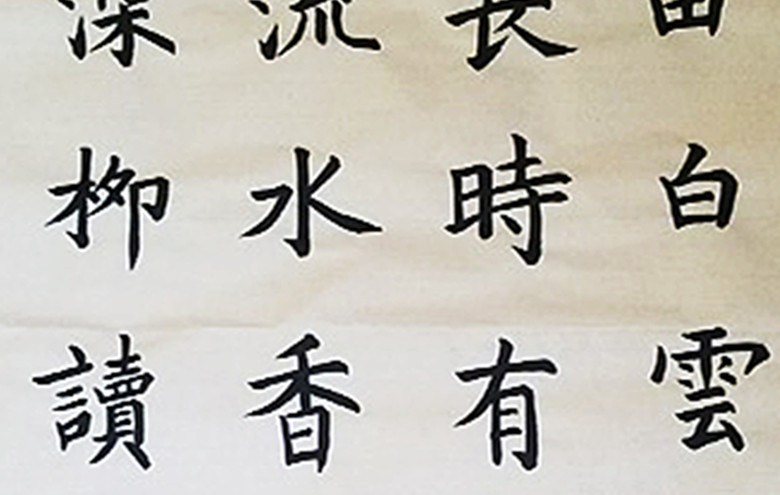 由白雲
長時有
流水香
深柳讀